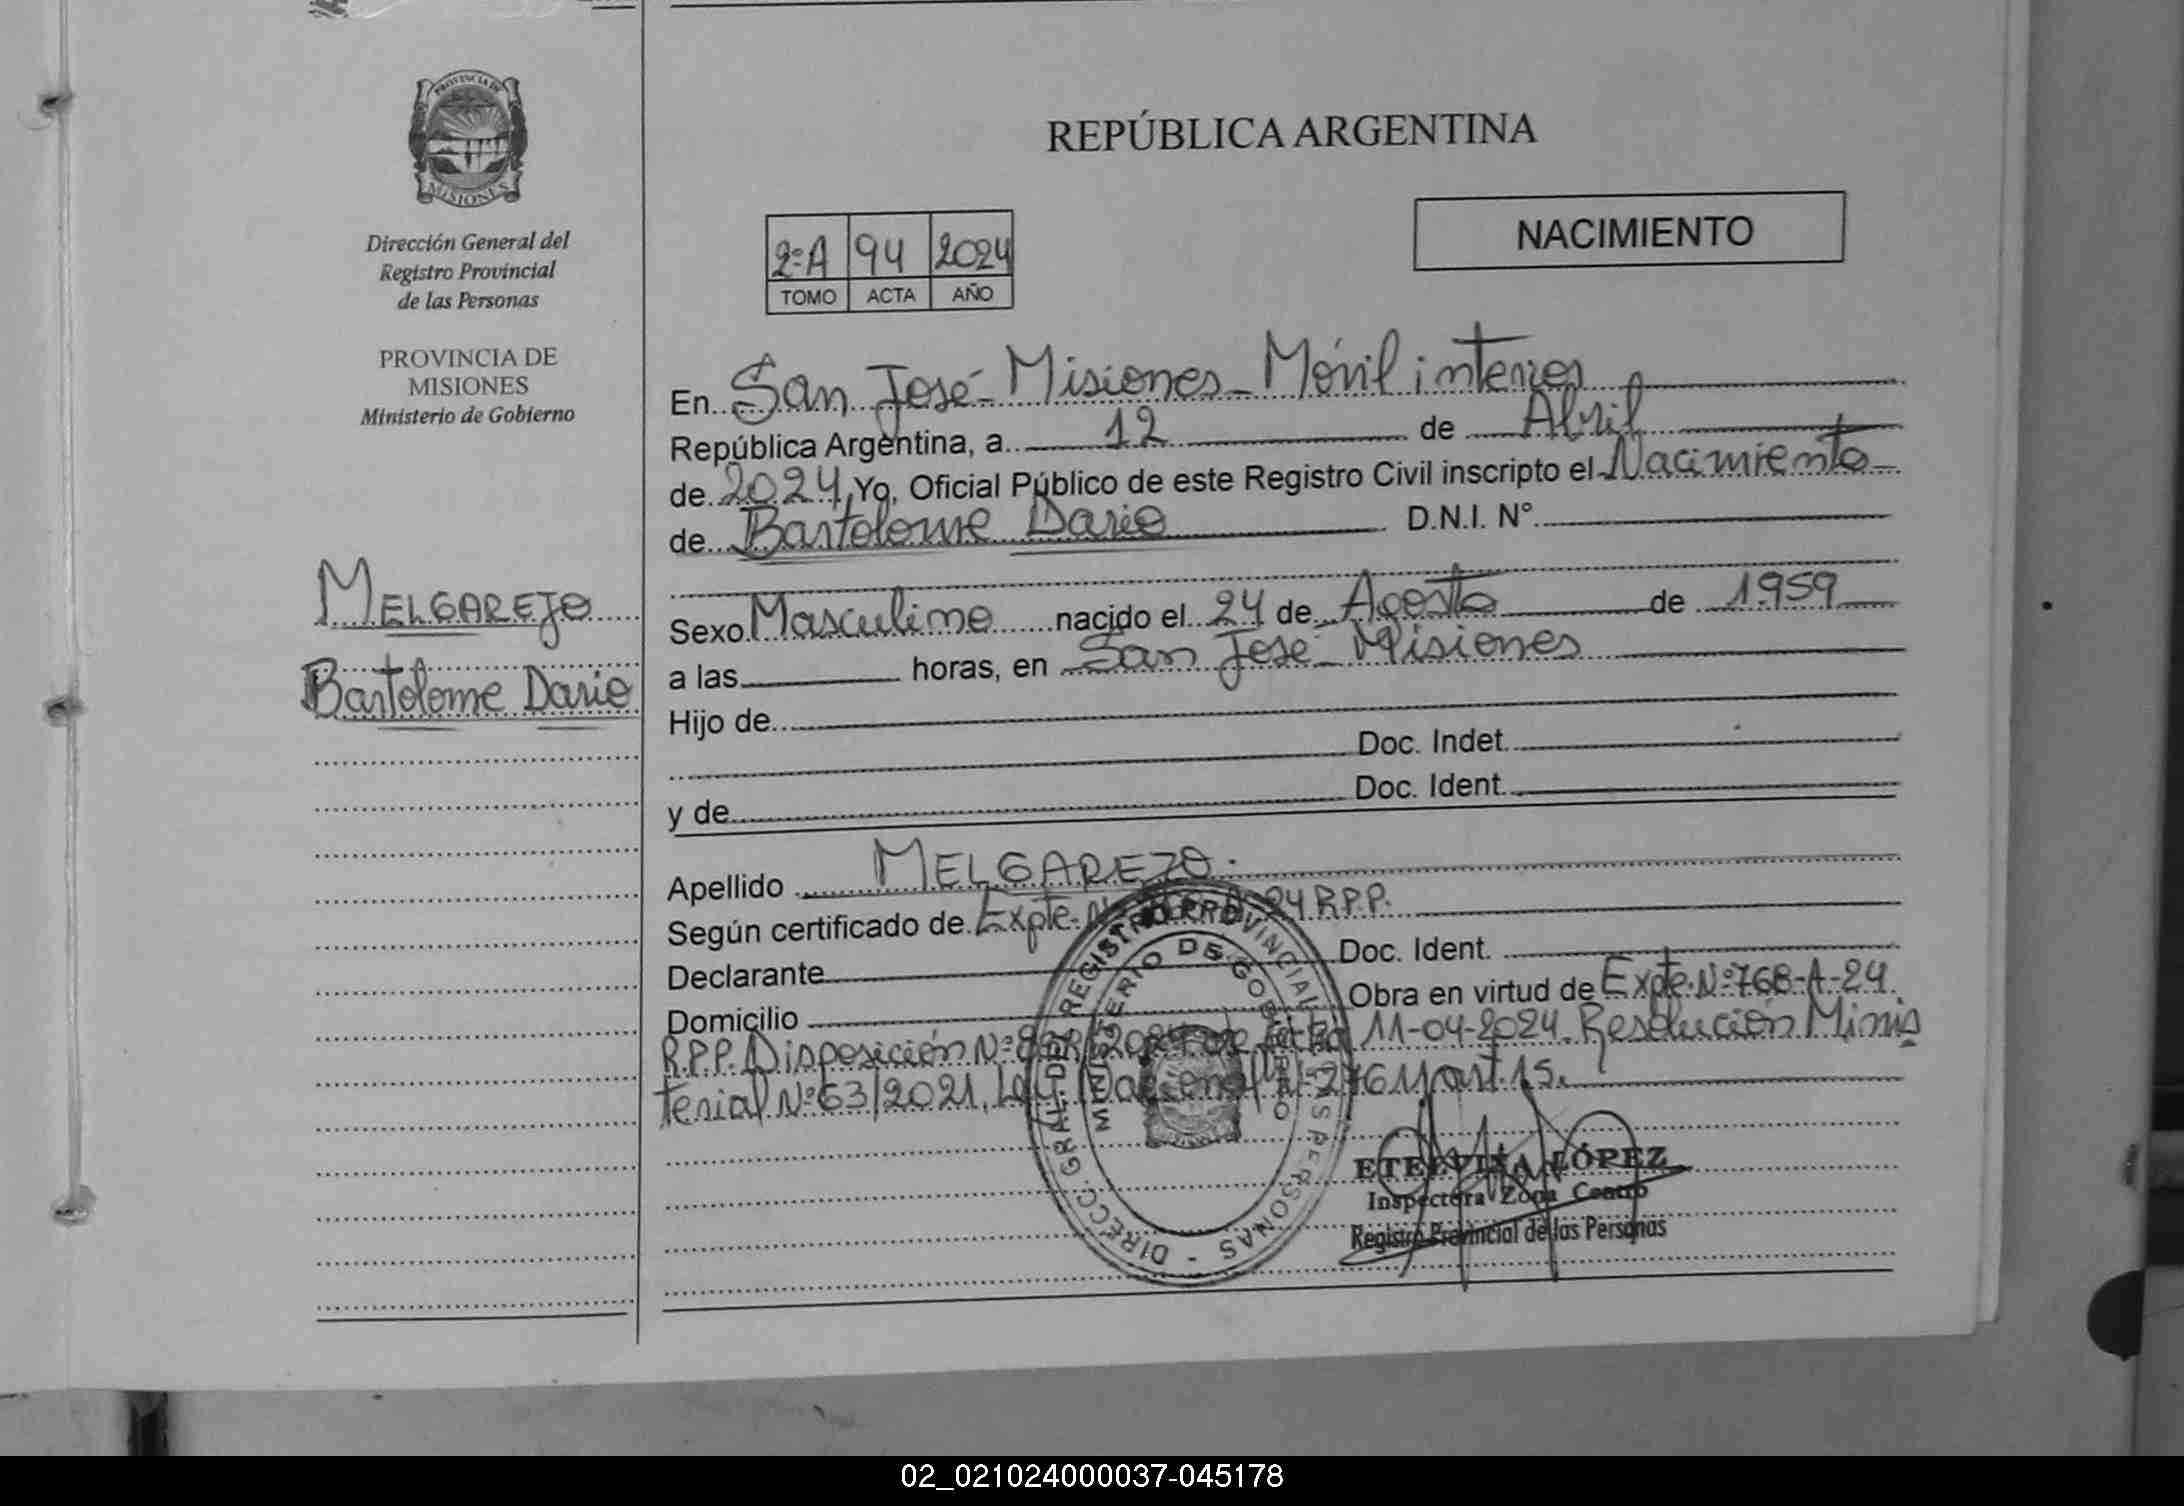 PROVINCIA DE
MISIONES
Dirección General del
Registro Provincial
de las Personas
PROVINCIA DE
MISIONES
Ministerio de Gobierno
MELGAREJO
Bartolome Dario
REPÚBLICA ARGENTINA
NACIMIENTO
2ºA 94 2024
TOMO ACTA AÑO
En San José - Misiones - Móvil interior
República Argentina, a 12 de Abril
de 2024, Yo, Oficial Público de este Registro Civil inscripto el Nacimiento
de Bartolome Dario D.N.I. N°
Sexo Masculino nacido el 24 de Agosto de 1959
a las horas, en San José - Misiones
Hijo de
Doc. Indet.
y de Doc. Ident.
Apellido MELGAREJO.
Según certificado de Expte. Nº 24 R.P.P.
Declarante Doc. Ident.
Domicilio Obra en virtud de Expte. Nº 768-A-24
R.P.P. Disposición Nº 2024 de fecha 11-04-2024. Resolución Minis
terial Nº 63/2021, Ley Nacional art. 15.
DIRECC. GRAL. DEL REGISTRO PROVINCIAL DE LAS PERSONAS -
MINISTERIO DE GOBIERNO
ETELVINA LÓPEZ
Inspectora Zona Centro
Registro Provincial de las Personas
02_021024000037-045178